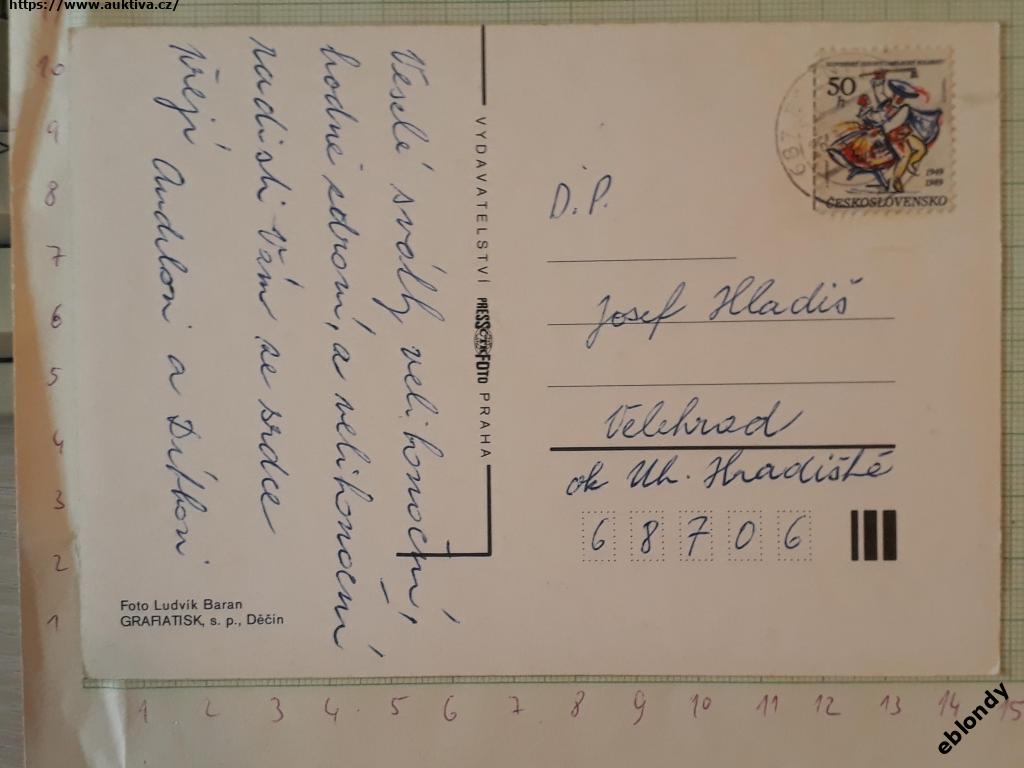 https://www.auktiva.cz/
Veselé svátky velikonoční,
hodně zdraví, a velikonoční
radosti Vám ze srdce
přejí Andeloví a
Foto Ludvík Baran
GRAFIATISK, s. p., Děčín
VYDAVATELSTVÍ PRESSFOTO PRAHA
50 h
1949
1989
ČESKOSLOVENSKO
687
D.P.
Josef Hladiš
Velehrad
ok Uh. Hradiště
68706
10
9
8
7
6
5
4
3
2
1
1 2 3 4 5 6 7 8 9 10 11 12 13 14 15
eblondy